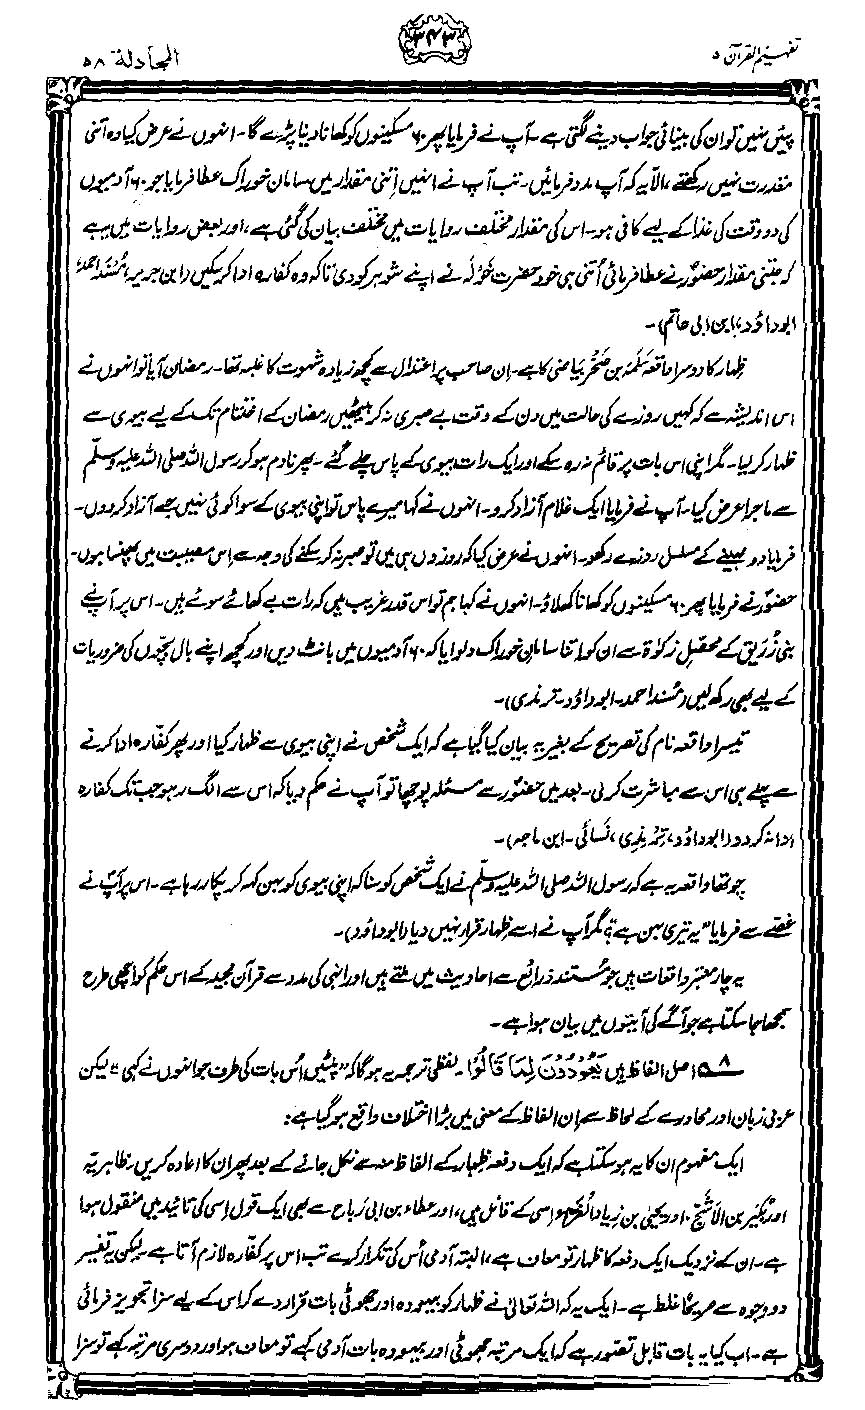 تفہیم القرآن ۵
۳۴۳
المجادلۃ ۵۸
پئیں نہیں تو ان کی بینائی جواب دینے لگتی ہے۔ آپ نے فرمایا پھر ۶۰ مسکینوں کو کھانا دینا پڑے گا۔ انہوں نے عرض کیا وہ اتنی
مقدرت نہیں رکھتے، الّا یہ کہ آپ مدد فرمائیں۔ تب آپ نے انہیں اتنی مقدار میں سامان خوراک عطا فرمایا جو ۶۰ آدمیوں
کی دو وقت کی غذا کے لیے کافی ہو۔ اس کی مقدار مختلف روایات میں مختلف بیان کی گئی ہے، اور بعض روایات میں یہ ہے
کہ جتنی مقدار حضورؐ نے عطا فرمائی اُتنی ہی خود حضرت خَولہ نے اپنے شوہر کو دی تاکہ وہ کفارہ ادا کر سکیں (ابن جریر، مُسند احمد،
ابوداؤد، ابن ابی حاتم)۔
ظِہار کا دوسرا واقعہ سَلَمہ بن صَخْر بَیاضی کا ہے۔ اِن صاحب پر اعتدال سے کچھ زیادہ شہوت کا غلبہ تھا۔ رمضان آیا تو انہوں نے
اس اندیشہ سے کہ کہیں روزے کی حالت میں دن کے وقت بے صبری نہ کر بیٹھیں رمضان کے اختتام تک کے لیے بیوی سے
ظہار کر لیا۔ مگر اپنی اس بات پر قائم نہ رہ سکے اور ایک رات بیوی کے پاس چلے گئے۔ پھر نادم ہو کر رسول اللہ صلی اللہ علیہ وسلم
سے ماجرا عرض کیا۔ آپ نے فرمایا ایک غلام آزاد کرو۔ انہوں نے کہا میرے پاس تو اپنی بیوی کے سوا کوئی نہیں جسے آزاد کر دوں۔
فرمایا دو مہینے کے مسلسل روزے رکھو۔ انہوں نے عرض کیا کہ روزوں ہی میں تو صبر نہ کر سکنے کی وجہ سے اِس مصیبت میں پھنسا ہوں۔
حضورؐ نے فرمایا پھر ۶۰ مسکینوں کو کھانا کھلاؤ۔ انہوں نے کہا ہم تو اس قدر غریب ہیں کہ رات بے کھائے سوئے ہیں۔ اس پر آپ نے
بنی زُرَیق کے محصّلِ زکوٰۃ سے ان کو اتنا سامانِ خوراک دلوایا کہ ۶۰ آدمیوں میں بانٹ دیں اور کچھ اپنے بال بچّوں کی ضروریات
کے لیے بھی رکھ لیں (مُسند احمد۔ ابوداؤد۔ ترمذی)۔
تیسرا واقعہ نام کی تصریح کے بغیر یہ بیان کیا گیا ہے کہ ایک شخص نے اپنی بیوی سے ظِہار کیا اور پھر کفّارہ ادا کرنے
سے پہلے ہی اس سے مباشرت کر لی۔ بعد میں حضورؐ سے مسئلہ پوچھا تو آپ نے حکم دیا کہ اس سے الگ رہو جب تک کفارہ
ادا نہ کر دو (ابوداؤد، ترمذی، نَسائی۔ ابن ماجہ)۔
چوتھا واقعہ یہ ہے کہ رسول اللہ صلی اللہ علیہ وسلم نے ایک شخص کو سنا کہ اپنی بیوی کو بہن کہہ کر پکار رہا ہے۔ اس پر آپؐ نے
غصّے سے فرمایا "یہ تیری بہن ہے؟ مگر آپ نے اسے ظِہار قرار نہیں دیا (ابوداؤد)۔
یہ چار معتبر واقعات ہیں جو مستند ذرائع سے احادیث میں ملتے ہیں اور انہی کی مدد سے قرآن مجید کے اس حکم کو اچھی طرح
سمجھا جا سکتا ہے جو آگے کی آیتوں میں بیان ہوا ہے۔
۸ اصل الفاظ ہیں يَعُوْدُوْنَ لِمَا قَالُوْا۔ لفظی ترجمہ یہ ہوگا کہ "پلٹیں اُس بات کی طرف جو انہوں نے کہی" لیکن
عربی زبان اور محاورے کے لحاظ سے اِن الفاظ کے معنی میں بڑا اختلاف واقع ہو گیا ہے:
ایک مفہوم ان کا یہ ہو سکتا ہے کہ ایک دفعہ ظِہار کے الفاظ منہ سے نکل جانے کے بعد پھر ان کا اعادہ کریں۔ ظاہریّہ
اور بُکیر بن الاَشَجّ، اور یحییٰ بن زیاد الفَرّاء اسی کے قائل ہیں، اور عطاء بن ابی رَباح سے بھی ایک قول اِسی کی تائید میں منقول ہوا
ہے۔ ان کے نزدیک ایک دفعہ کا ظہار تو معاف ہے، البتہ آدمی اُس کی تکرار کرے تب اس پر کفّارہ لازم آتا ہے۔ لیکن یہ تفسیر
دو وجوہ سے صریحًا غلط ہے۔ ایک یہ کہ اللہ تعالیٰ نے ظِہار کو بیہودہ اور جھوٹی بات قرار دے کر اس کے لیے سزا تجویز فرمائی
ہے۔ اب کیا یہ بات قابلِ تصوّر ہے کہ ایک مرتبہ جھوٹی اور بیہودہ بات آدمی کہے تو معاف ہو اور دوسری مرتبہ کہے تو سزا